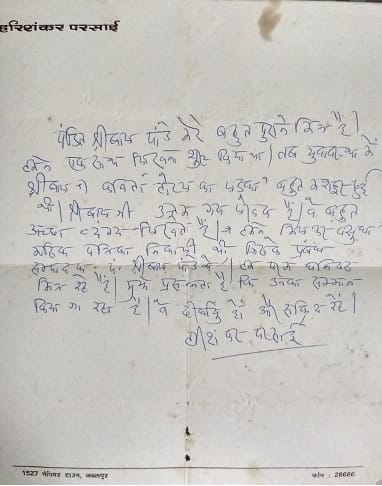 हरिशंकर परसाई
पंडित श्रीबाल पांडे मेरे बहुत पुराने मित्र हैं।
हमने एक साथ लिखना शुरू किया था। तब युवावस्था में
श्रीबाल जी कविता का बहुत मशहूर हुई
थी। श्रीबाल जी उत्तम गद्य लेखक हैं। वे बहुत
अच्छा व्यंग्य लिखते हैं। हमने मिलकर वसुधा
मासिक पत्रिका निकाली थी जिसके प्रबंध
सम्पादक पं. श्रीबाल पांडे थे। हम घनिष्ठ
मित्र रहे हैं। मुझे प्रसन्नता है कि उनका सम्मान
किया जा रहा है। वे दीर्घायु हों और सक्रिय रहें।
हरिशंकर परसाई
1527 नेपियर टाउन, जबलपुर
फोन : 28686